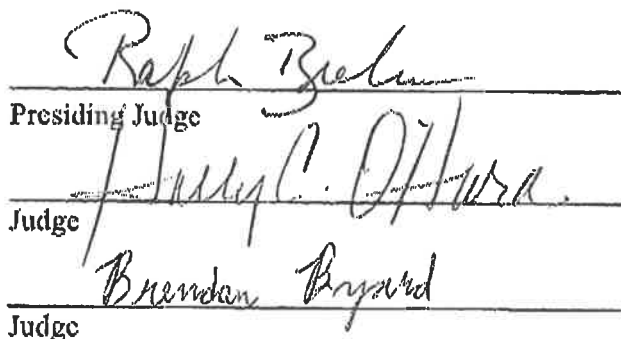 Ralph
Presiding Judge
Holly C. O'Hara
Judge
Brendan Byard
Judge